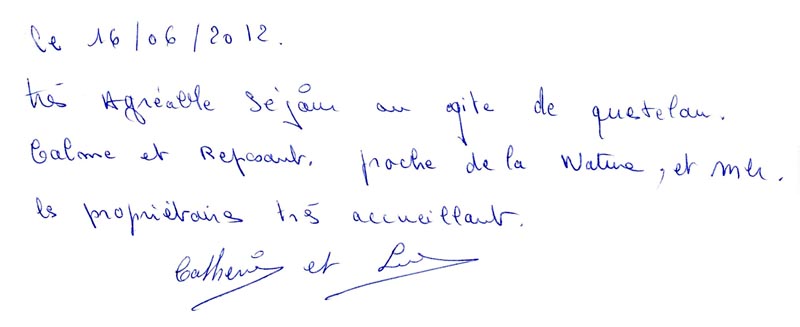 le 16/06/2012.
très Agréable séjour au gite de questelan.
Calme et Reposant. proche de la Nature, et mer.
les propriétaires très accueillant.
Catherine et Luc